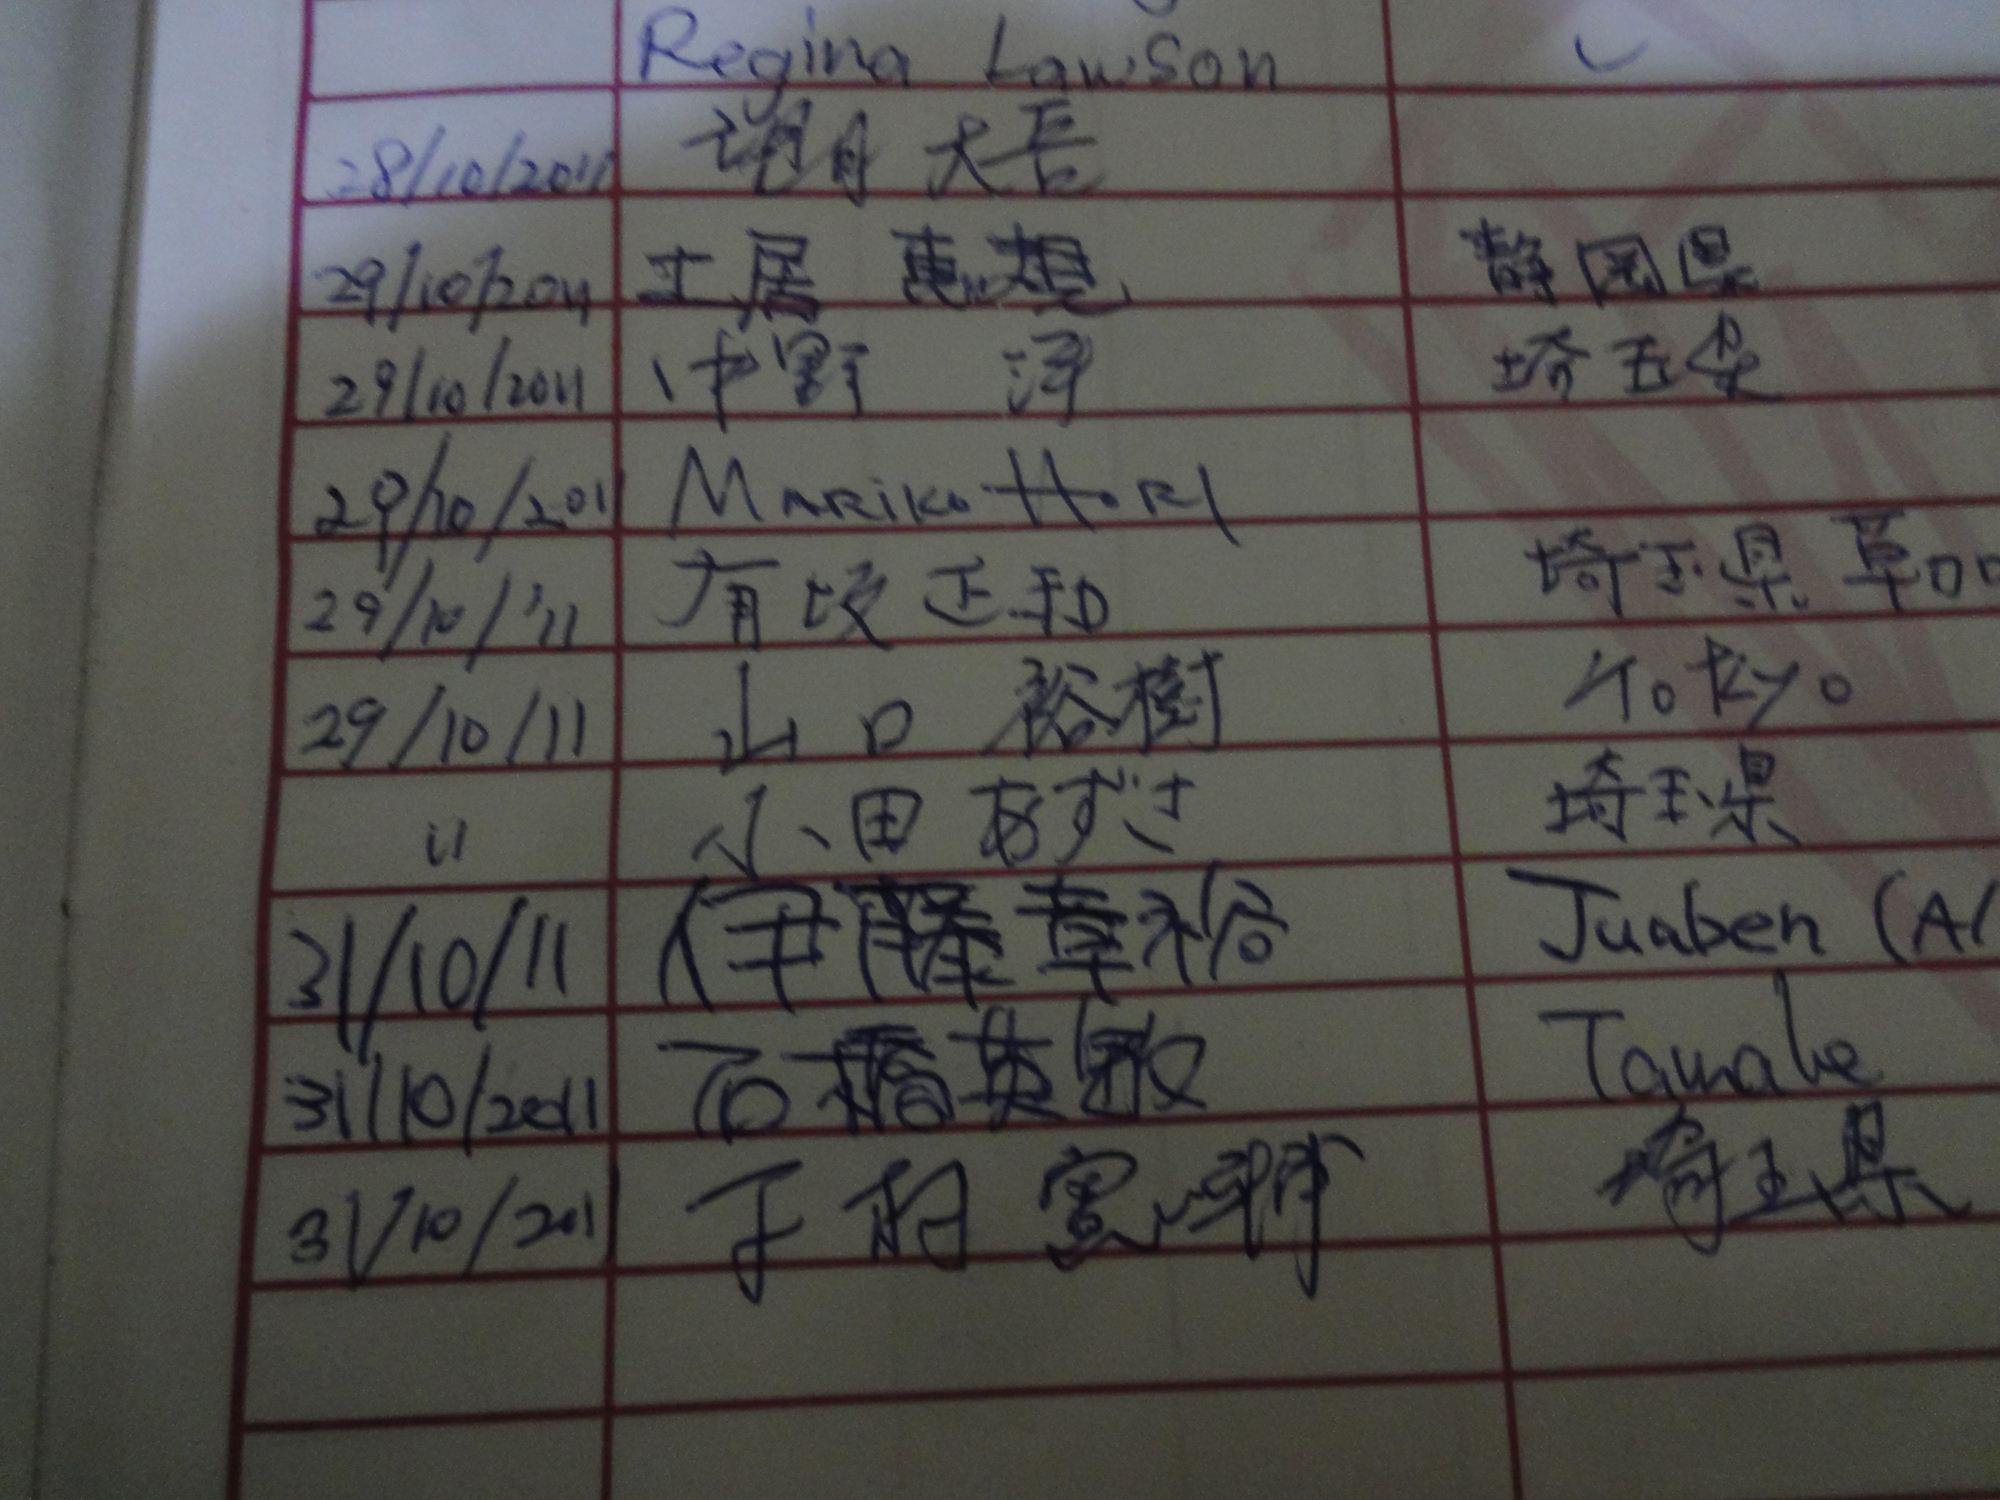 Regina Lawson
28/10/2011 望月 大長
29/10/2011 土居 恵規 静岡県
29/10/2011 中野 淳 埼玉県
29/10/201 Mariko Hori
29/10/'11 有坂正和 埼玉県 草加
29/10/11 山口 裕樹 Tokyo
〃 小田あずさ 埼玉県
31/10/11 伊藤章裕 Juaben (A
31/10/2011 石橋英敏 Tamale
31/10/201 埼玉県